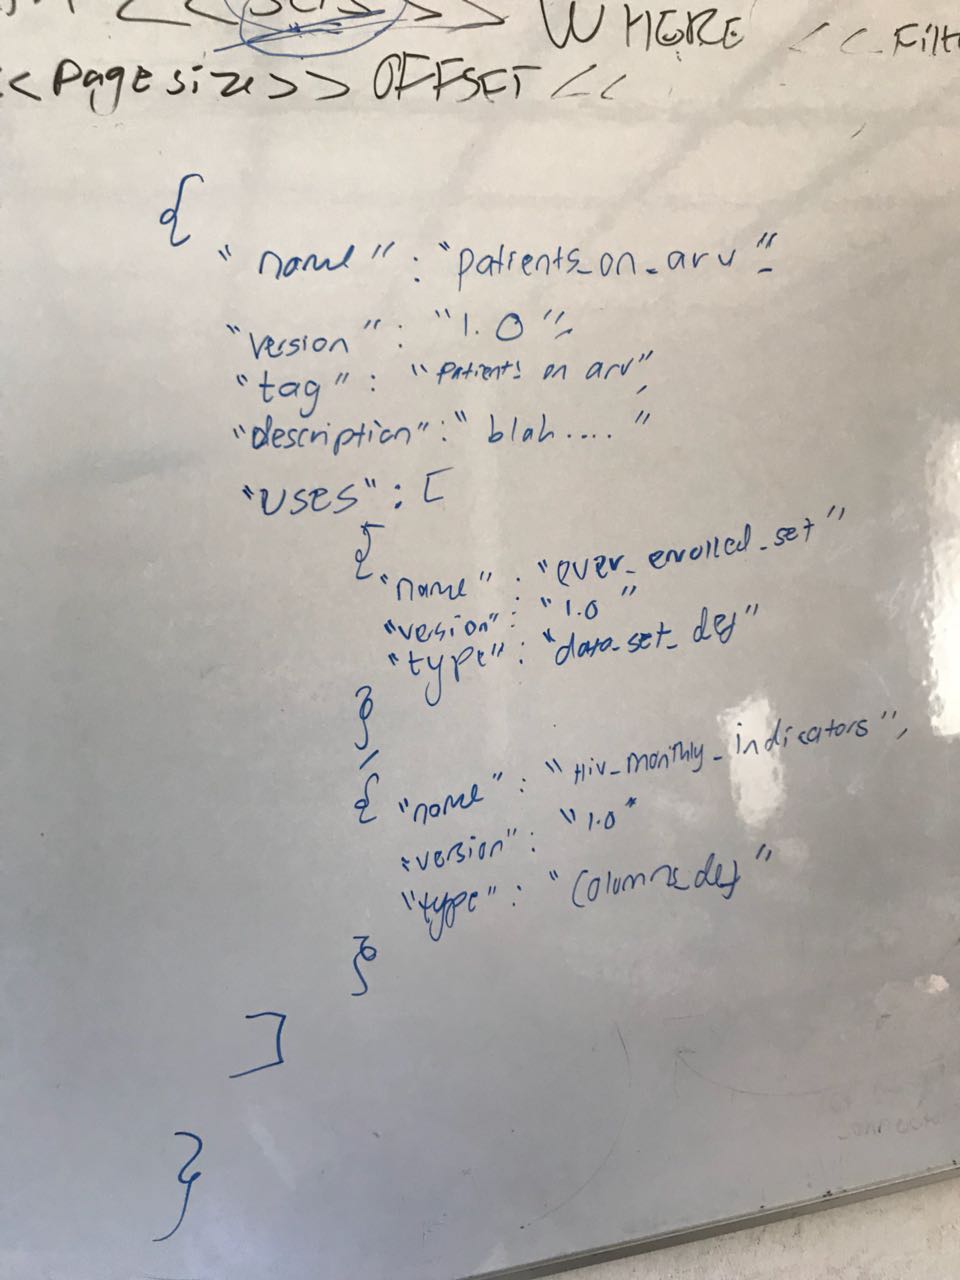 << sets >> WHERE << Filt
<< Page size >> OFFSET <<
{
"name" : "patients_on_arv"
"version" : "1.0",
"tag" : "patients on arv",
"description" : "blah...."
"uses" : [
{
"name" : "ever_enrolled_set"
"version" : "1.0"
"type" : "data_set_def"
}
,
{ "name" : "Hiv_monthly_indicators",
"version" : "1.0"
"type" : "Columns_def"
}
]
}